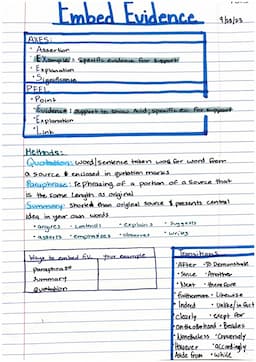 Embed Evidence
AXES:
• Assertion
• Example: specific evidence for support
• Explanation
• Significance
PEEL:
• Point
• Evidence: support to show specific ex for support
• Explanation
• Link
Methods:
Quotation: word/sentence taken word for word from
a source & enclosed in quotation marks
Paraphrase: rephrasing of a portion of a source that
is the same length as original
Summary: shorter than original source & presents central
idea in your own words
• argues • contends • explains • suggests
• asserts • emphasizes • observes • writes
Ways to embed Ev. your example
Paraphrase
Summary
Quotation
Transitions:
• After • To Demonstrate
• Since • Another
• Next • therefore
• furthermore • Likewise
• Indeed • Unlike/in fact
• clearly • except for
• on the other hand • Besides
• Nonetheless • Conversely
• However • accordingly
Aside from • While